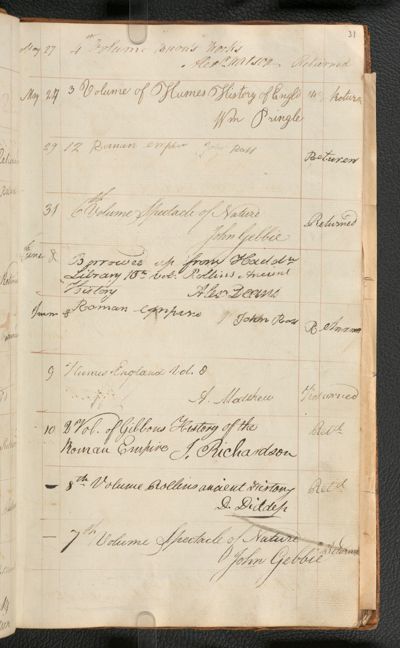 31
May 27 4th Volume Works
Returned
May 27 3 Volume of Humes History of Engl
Wm Pringle
29 12 Roman empire John Ross Returen
31 6th Volume Spectacle of Nature Returned
John Gebbie
June 8 Borrowed from Haddn
Library 10th Vol. Rollins Ancient
History Alex Deans
June 8 Roman empire John Ross
9 Humes England Vol. 8
A. Matthew Returned
10 2nd Vol. of Gibbons History of the Retd
Roman Empire J. Richardson
- 8th Volume Rollins ancient History Retd
D. Diddep
- 7th Volume Spectacle of Nature Returned
John Gebbie